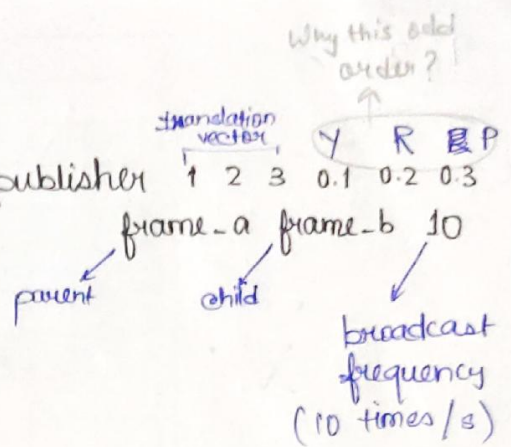 Why this odd
order?
translation
vector
Y R P
publisher 1 2 3 0.1 0.2 0.3
frame_a frame_b 10
parent
child
broadcast
frequency
(10 times/s)